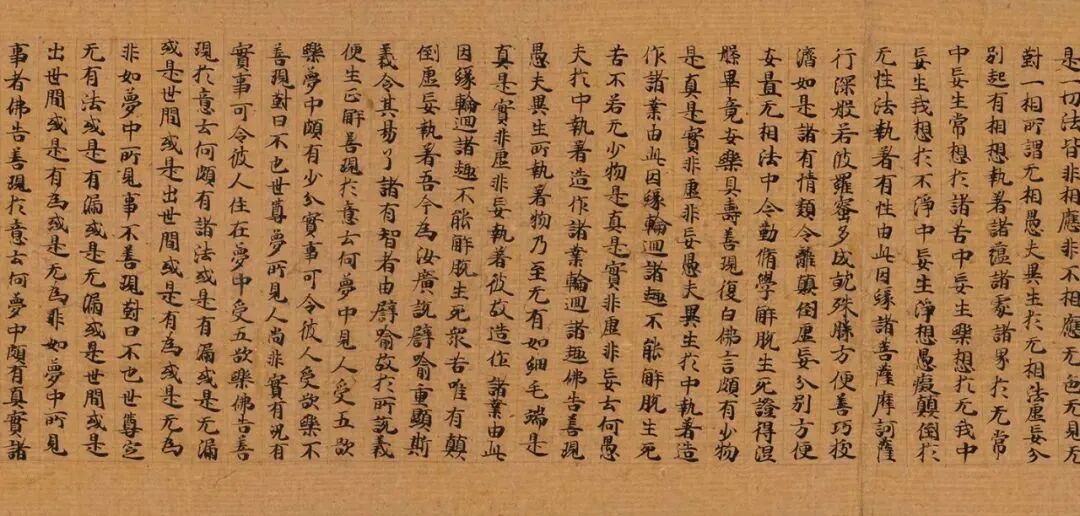 是一切法皆非相應非不相應无色无見无
對一相所謂无相愚夫異生於无相法虛妄分
別起有相想執著諸蘊諸處諸界於无常
中妄生常想於諸苦中妄生樂想於无我中
妄生我想於不淨中妄生淨想愚癡顛倒於
无性法執著有性由此因緣諸菩薩摩訶薩
行深般若波羅蜜多成就殊勝方便善巧拔
濟如是諸有情類令離顛倒虛妄分別方便
安置无相法中令勤脩學解脫生死證得涅
槃畢竟安樂具壽善現復白佛言頗有少物
是真是實非虛非妄愚夫異生於中執著造
作諸業由此因緣輪迴諸趣不能解脫生死
苦不若无少物是真是實非虛非妄云何愚
夫於中執著造作諸業輪迴諸趣佛告善現
愚夫異生所執著物乃至无有如細毛端是
真是實非虛非妄執著彼故造作諸業由此
因緣輪迴諸趣不能解脫生死眾苦唯有顛
倒虛妄執著吾今為汝廣說譬喻重顯斯
義令其易了諸有智者由譬喻故於所說義
便生正解善現於意云何夢中見人受五欲
樂夢中頗有少分實事可令彼人受欲樂不
善現對曰不也世尊夢所見人尚非實有況有
實事可令彼人住在夢中受五欲樂佛告善
現於意云何頗有諸法或是有漏或是无漏
或是世間或是出世間或是有為或是无為
非如夢中所見事不善現對曰不也世尊定
无有法或是有漏或是无漏或是世間或是
出世間或是有為或是无為非如夢中所見
事者佛告善現於意云何夢中頗有真實諸